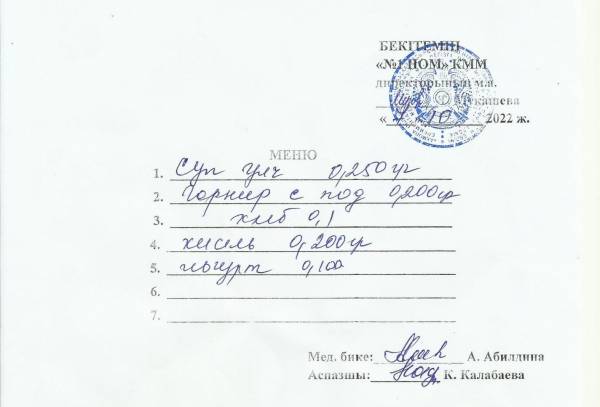 БЕКІТЕМІН
«№1 ЦОМ» КММ
директорының м.а.
Мукашева
« » 10 2022 ж.
МЕНЮ
1. Суп 0,250 гр
2. Гарнир с под 0,200 гр
3. хлеб 0,1
4. кисель 0,200 гр
5. йогурт 0,100
6.
7.
Мед. бике: А. Абилдина
Аспазшы: К. Калабаева